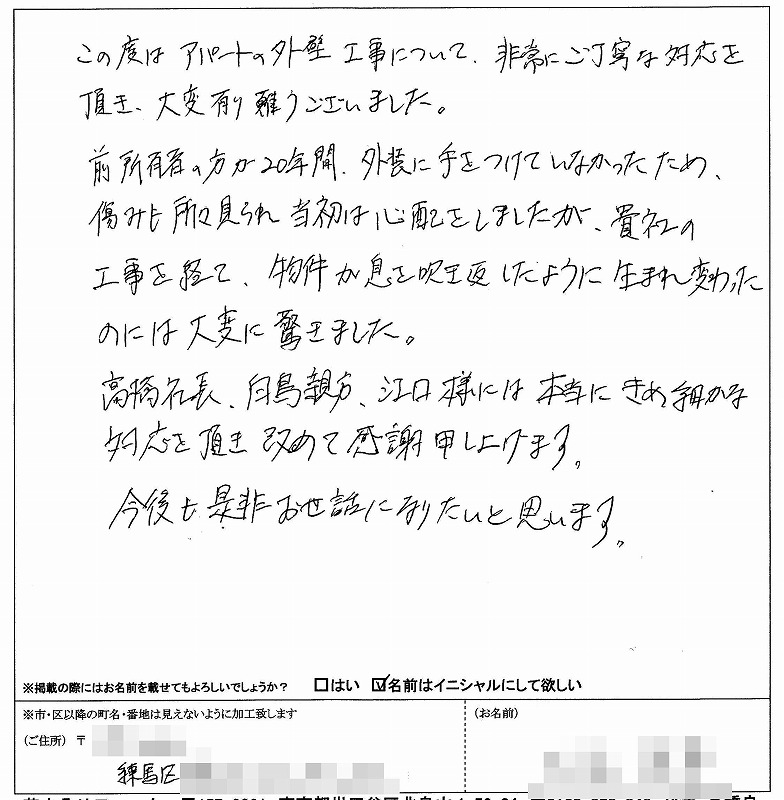 この度は アパートの外壁工事について、非常にご丁寧な対応を
頂き、大変有り難うございました。
前所有者の方が20年間、外装に手をつけていなかったため、
傷みも所々見られ当初は心配をしましたが、貴社の
工事を経て、物件が息を吹き返したように生まれ変わった
のには大変に驚きました。
高橋社長、白鳥親方、江口様には本当にきめ細かな
対応を頂き改めて感謝申し上げます。
今後も是非お世話になりたいと思います。
※掲載の際にはお名前を載せてもよろしいでしょうか? □はい ☑名前はイニシャルにして欲しい
※市・区以降の町名・番地は見えないように加工致します
(お名前)
(ご住所) 〒
練馬区